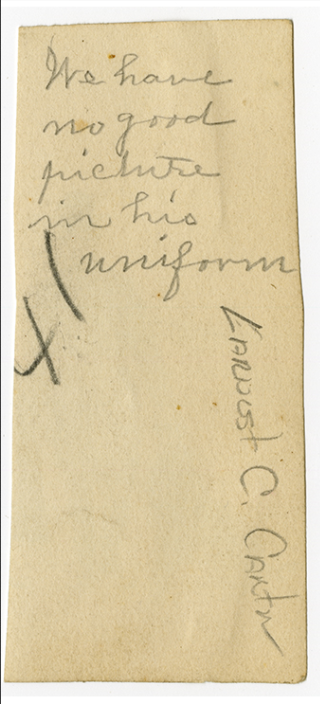 We have
no good
picture
in his
uniform
C.